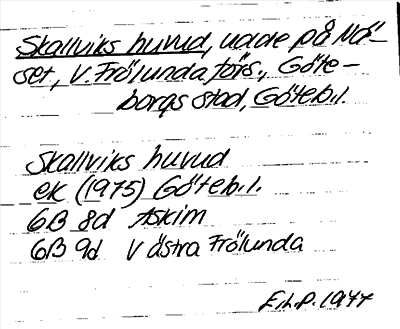 Skallviks huvud, udde på Nä-
set, V. Frölunda förs., Göte-
borgs stad, Göteb.l.
Skallviks huvud
ek (1975) Göteb.l.
6B 8d Askim
6B 9d Västra Frölunda
F.i.P. 1944